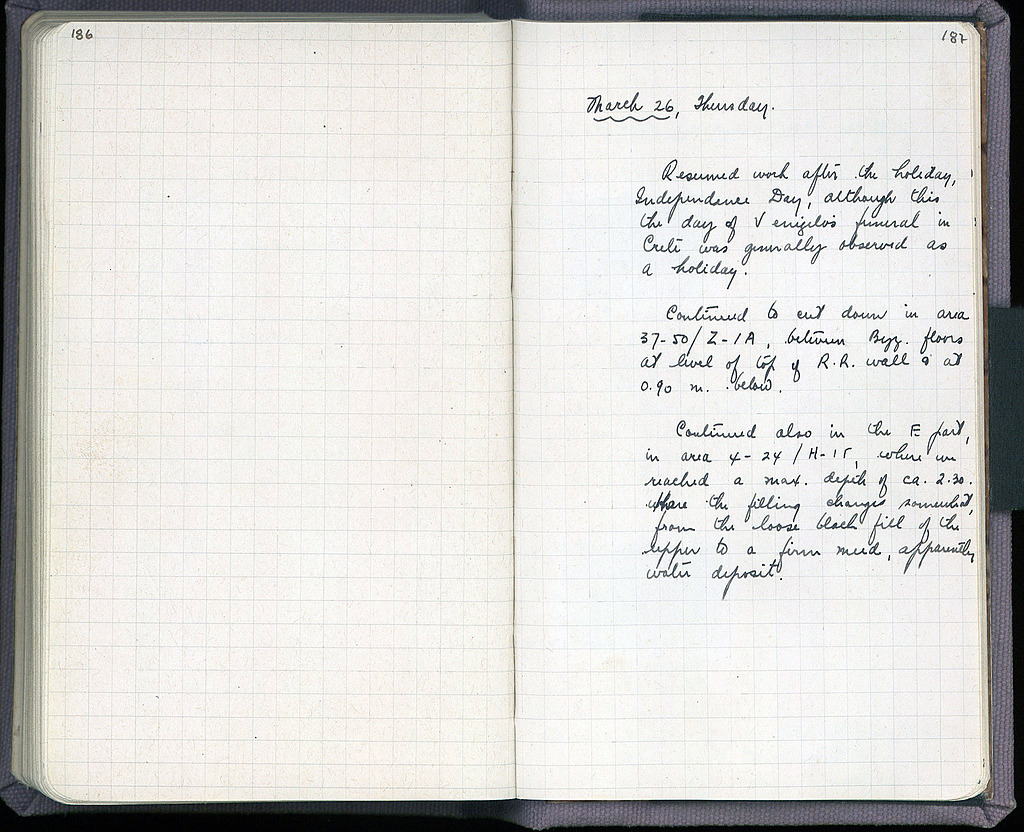 186
187
March 26, Thursday.
Resumed work after the holiday,
Independence Day, although this
the day of Venizelos funeral in
Crete was generally observed as
a holiday.
Continued to cut down in area
37-50/Z-1A, between Byz. floors
at level of top of R.R. wall & at
0.90 m. below.
Continued also in the E part,
in area 4-24/H-1Γ, where we
reached a max. depth of ca. 2.30.
where the filling changes somewhat,
from the loose black fill of the
upper to a firm mud, apparently
water deposit.